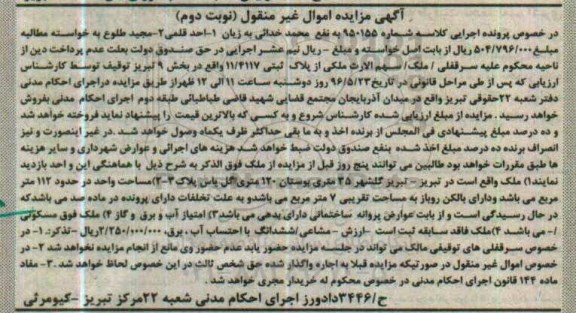 آگهی مزایده اموال غیر منقول (نوبت دوم)
در خصوص پرونده اجرایی کلاسه شماره ۹۵۰۱۵۵ به نفع محمد خدائی به زیان ۱-احد قلمی ۲-مجید طلوع به خواسته مطالبه
مبلغ ۵۰۴/۷۹۶/۰۰۰ ریال از بابت اصل خواسته و مبلغ - ریال نیم عشر اجرایی در حق صندوق دولت بعلت عدم پرداخت دین از
ناحیه محکوم علیه سرقفلی / ملک/ سهم الارث ملکی از پلاک ثبتی ۱۱/۴۱۱۷ واقع در بخش ۹ تبریز توقیف توسط کارشناس
ارزیابی که پس از طی مراحل قانونی در تاریخ ۹۶/۵/۲۳ روز دوشنبه ساعت ۱۱ الی ۱۲ ظهراز طریق مزایده دراجرای احکام مدنی
دفتر شعبه ۲۲حقوقی تبریز واقع در میدان آذربایجان مجتمع قضایی شهید قاضی طباطبائی طبقه دوم اجرای احکام مدنی بفروش
خواهد رسید . مزایده از مبلغ ارزیابی شده کارشناس شروع و به کسی که بالاترین قیمت را پیشنهاد نماید فروخته خواهد شد
و ده درصد مبلغ پیشنهادی فی المجلس از برنده اخذ و به ما بقی حداکثر ظرف یکماه وصول خواهد شد .در غیر اینصورت و نیز
انصراف برنده ده درصد مبلغ اخذ شده بنفع صندوق دولت ضبط خواهد شد هزینه های اجرائی و عوارض شهرداری و سایر هزینه
ها طبق مقررات خواهد بود طالبین می توانند پنج روز قبل از مزایده از ملک فوق الذکر به شرح ذیل با هماهنگی این و احد بازدید
نمایند۱) ملک واقع است در تبریز – تبریز گلشهر ۳۵ متری بوستان ۱۲۰ متری گل یاس پلاک ۲۳ ۲)مساحت واحد در حدود ۱۱۳ متر
مربع می باشد ودارای بالکن روباز به مساحت تقریبی ۷ متر مربع می باشدو به علت تخلفات دارای پرونده در ماده صد می باشدکه
در حال رسیدگی است و از بابت عوارض پروانه ساختمانی دارای بدهی می باشد۳) امتیاز آب و برق و گاز ۴) ملک فوق مسکونی
/- می باشد ۴)ملک فاقد سابقه ثبت است –ارزش – مشاعی/ششدانگ با احتساب آب ، برق، ۲/۲۵۰/۰۰۰/۰۰۰ریال –تذکر:. ۱- در
خصوص سرقفلی های توقیفی مالک می تواند در جلسه مزایده حضور یابد عدم حضور وی مانع از انجام مزایده نخواهد شد ۲- در
خصوص اموال غیر منقول در صورتیکه مزایده قبلا به اجاره واگذار شده حق شخص ثالث در این خصوص لحاظ خواهد شد .۳- مفاد
ماده ۱۴۴ قانون اجرای احکام مدنی در خصوص محکوم له خریدار مجری خواهد شد .
ح/۳۴۴۶دادورز اجرای احکام مدنی شعبه ۲۲مرکز تبریز -کیومرثی